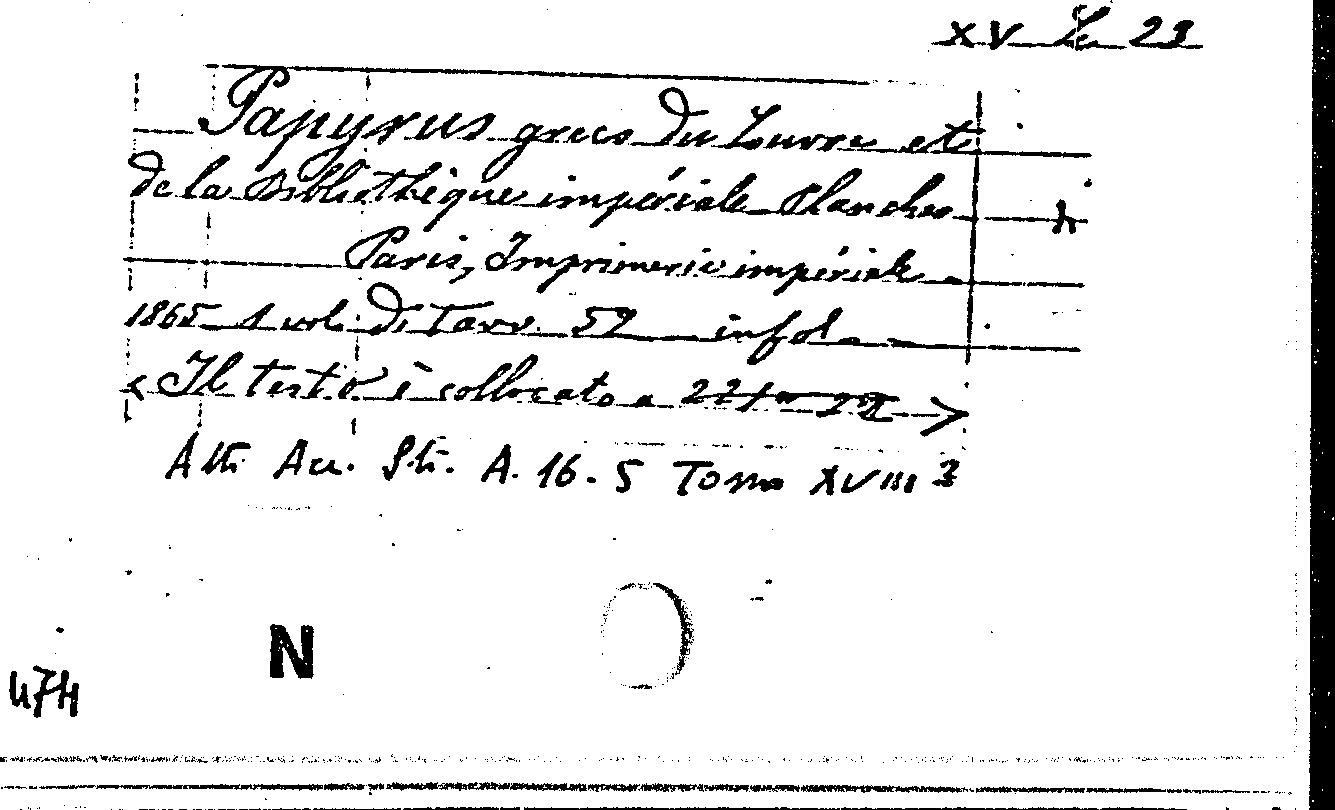 XV Le 23
Papyrus grecs du Louvre et
de la Bibliothèque impériale Planches
Paris, Imprimerie impériale
1865 1 vol. di Tavv. 52 in fol.
< Il testo è collocato a >
Atti Acc. Sti. A. 16. 5 Tomo XVIII 2
N
474